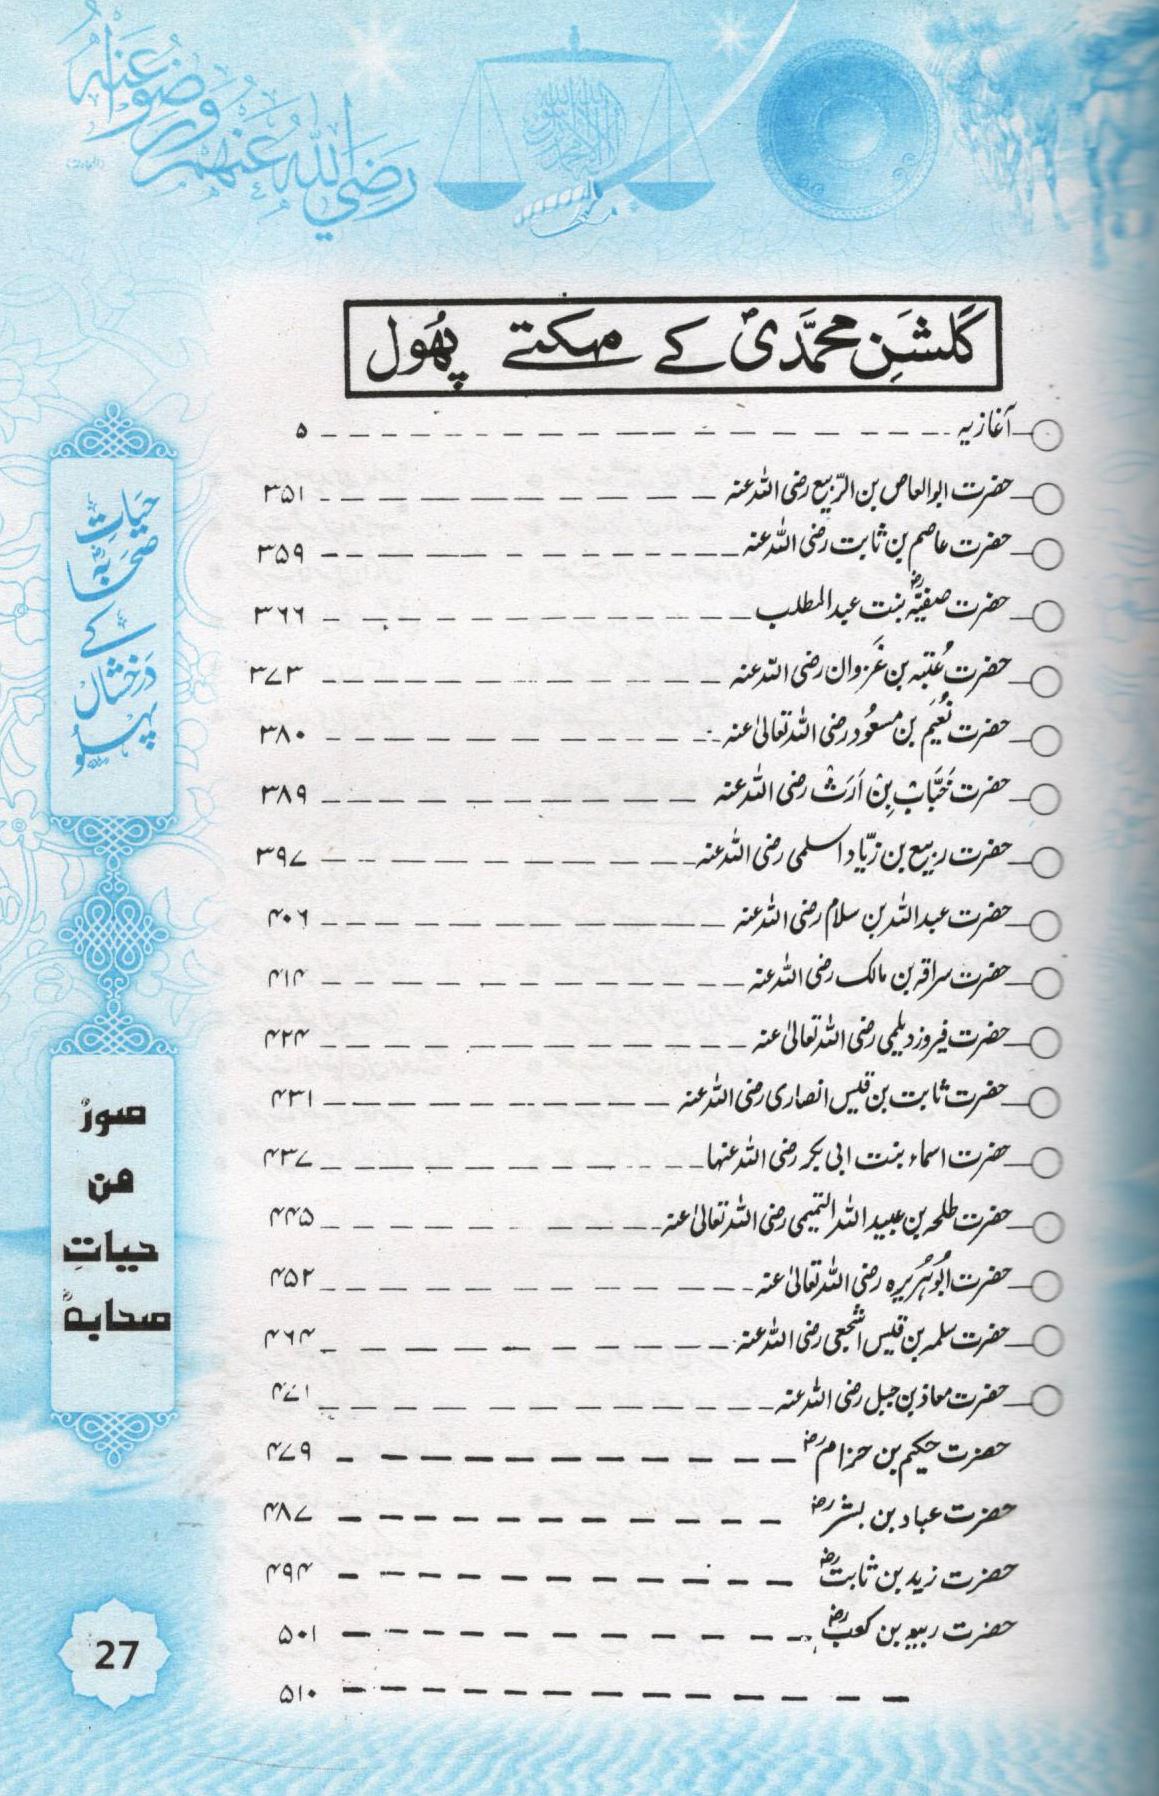 رَضِيَ اللهُ عَنْهُمْ وَرَضُوْا عَنْهُ
گلشنِ محمّدیؐ کے مہکتے پھول
آغازیہ ۵
حضرت ابوالعاص بن الرّبیع رضی اللہ عنہ ۳۵۱
حضرت عاصم بن ثابت رضی اللہ عنہ ۳۵۹
حضرت صفیّہؓ بنت عبدالمطلب ۳۶۶
حضرت عُتبہ بن غَزوان رضی اللہ عنہ ۳۷۳
حضرت نُعَیم بن مسعُود رضی اللہ تعالیٰ عنہ ۳۸۰
حضرت خَبَّاب بِنْ اَرَتْ رضی اللہ عنہ ۳۸۹
حضرت ربیع بن زیّاد اسلمی رضی اللہ عنہ ۳۹۷
حضرت عبداللہ بن سلام رضی اللہ عنہ ۴۰۶
حضرت سراقہ بن مالک رضی اللہ عنہ ۴۱۴
حضرت فیروز دیلمی رضی اللہ تعالیٰ عنہ ۴۲۴
حضرت ثابت بن قیس انصاری رضی اللہ عنہ ۴۳۱
حضرت اسماء بنت ابی بکر رضی اللہ عنہا ۴۳۷
حضرت طلحہ بن عبید اللہ التیمیمی رضی اللہ تعالیٰ عنہ ۴۴۵
حضرت ابُوہُریرہ رضی اللہ تعالیٰ عنہ ۴۵۲
حضرت سلمہ بن قیس اشجعی رضی اللہ عنہ ۴۶۴
حضرت معاذ بن جبل رضی اللہ عنہ ۴۷۱
حضرت حکیم بن حزامؓ ۴۷۹
حضرت عباد بن بشرؓ ۴۸۷
حضرت زید بن ثابتؓ ۴۹۴
حضرت ربیع بن کعبؓ ۵۰۱
۵۱۰
حَیاتِ
صحَابہؓ
کے
دَرخشاں
پہلو
صورٌ
من
حیاتِ
صحابہؓ
27